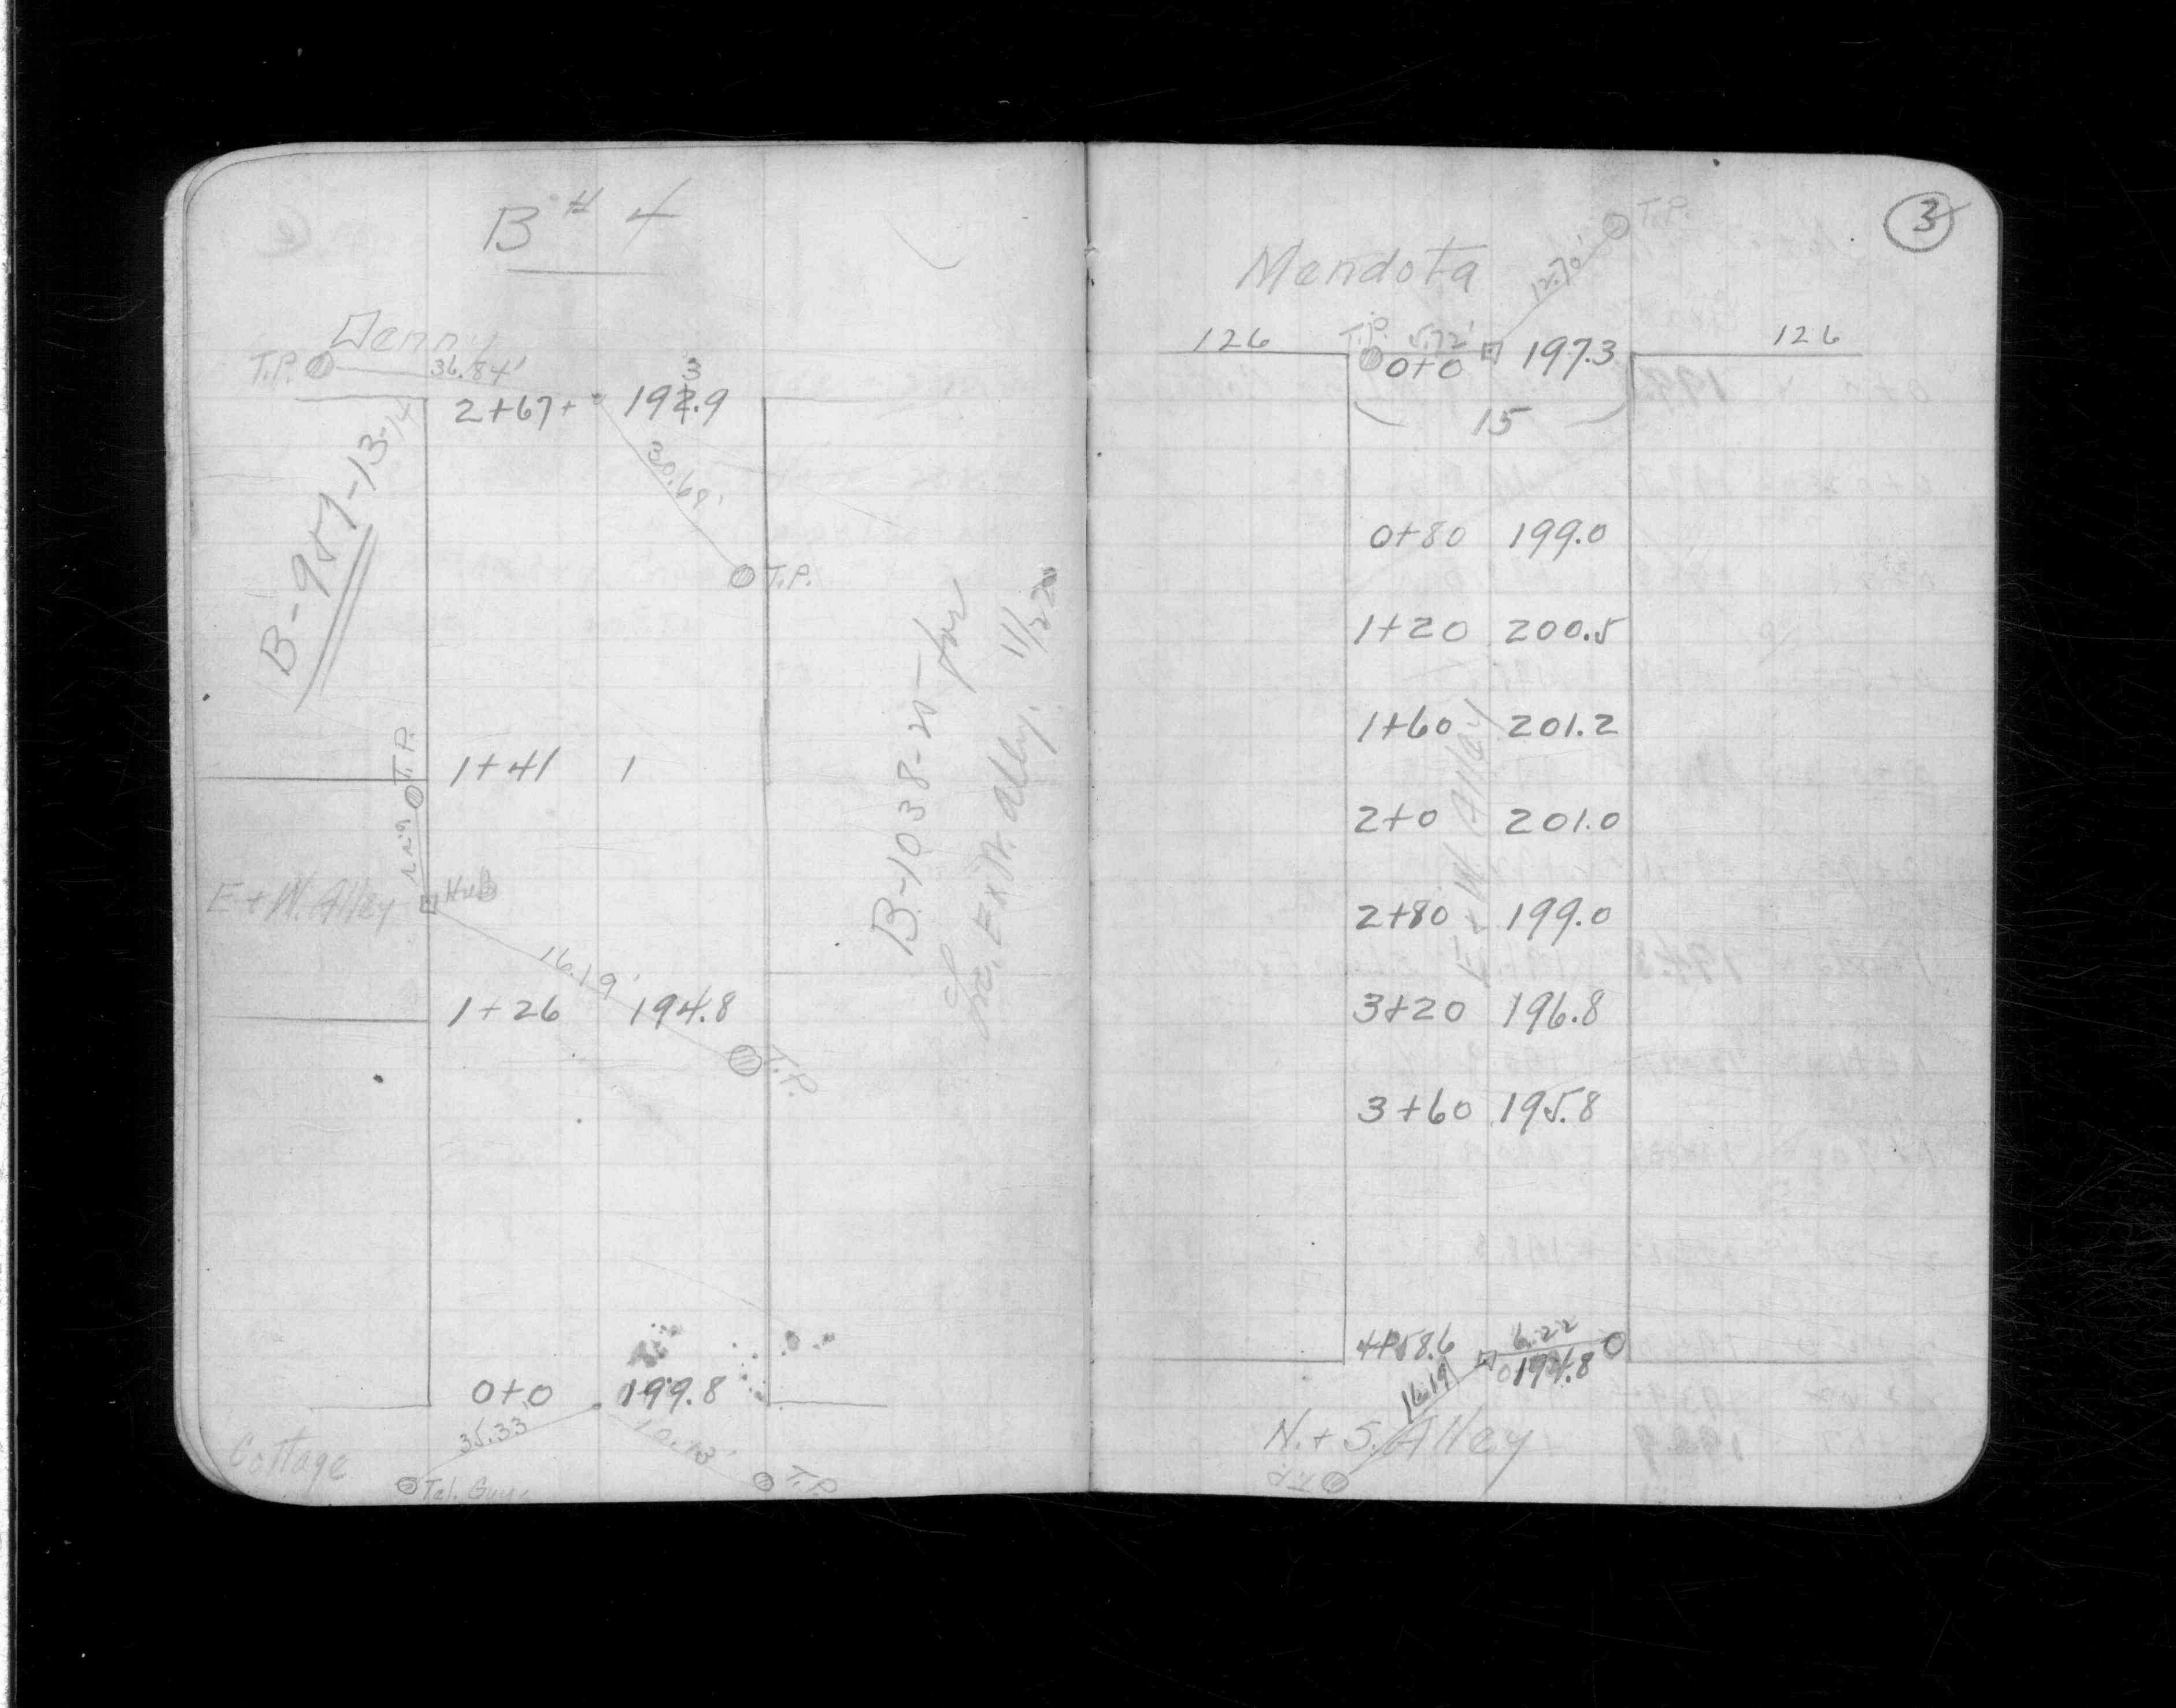 B # 4
Denny
T.P.
36.84'
3
2+67+ 192.9
30.68'
T.P.
B-957-13-14
T.P.
1+41 1
E + W. Alley
Hub
16.19'
1+26 194.8
T.P.
B-1038-25 for
Ext. alley. 11/20
0+0 199.8
35.33'
10.13'
Cottage
Tel. Guy.
T.P.
3
T.P.
12.70'
Mendota
126
T.P. 5.72'
0+0 197.3
126
15
0+80 199.0
1+20 200.5
1+60 201.2
2+0 201.0
2+80 199.0
3+20 196.8
3+60 195.8
E. + W. Alley
4+58.6
6.22
194.8
16.19
N. + S. Alley
T.P.